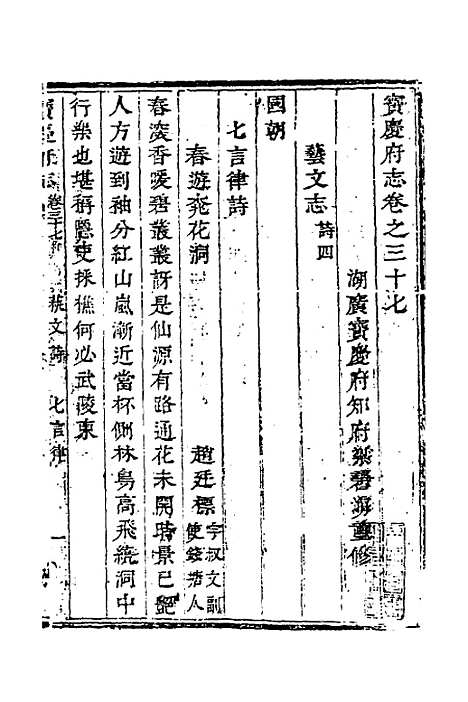 寶慶府志卷之三十七
湖廣寶慶府知府梁碧海重修
藝文志 詩四
國朝
七言律詩
春遊堯花洞 趙廷標 字叔文副使錢塘人
春深香暖碧叢叢訝是仙源有路通花未開時景已絕
人方遊到袖分紅山嵐漸近當杯側林鳥高飛繞洞中
行樂也堪稱隱吏採樵何必武陵東
寶慶府志 卷三十七 藝文詩 七言律 一